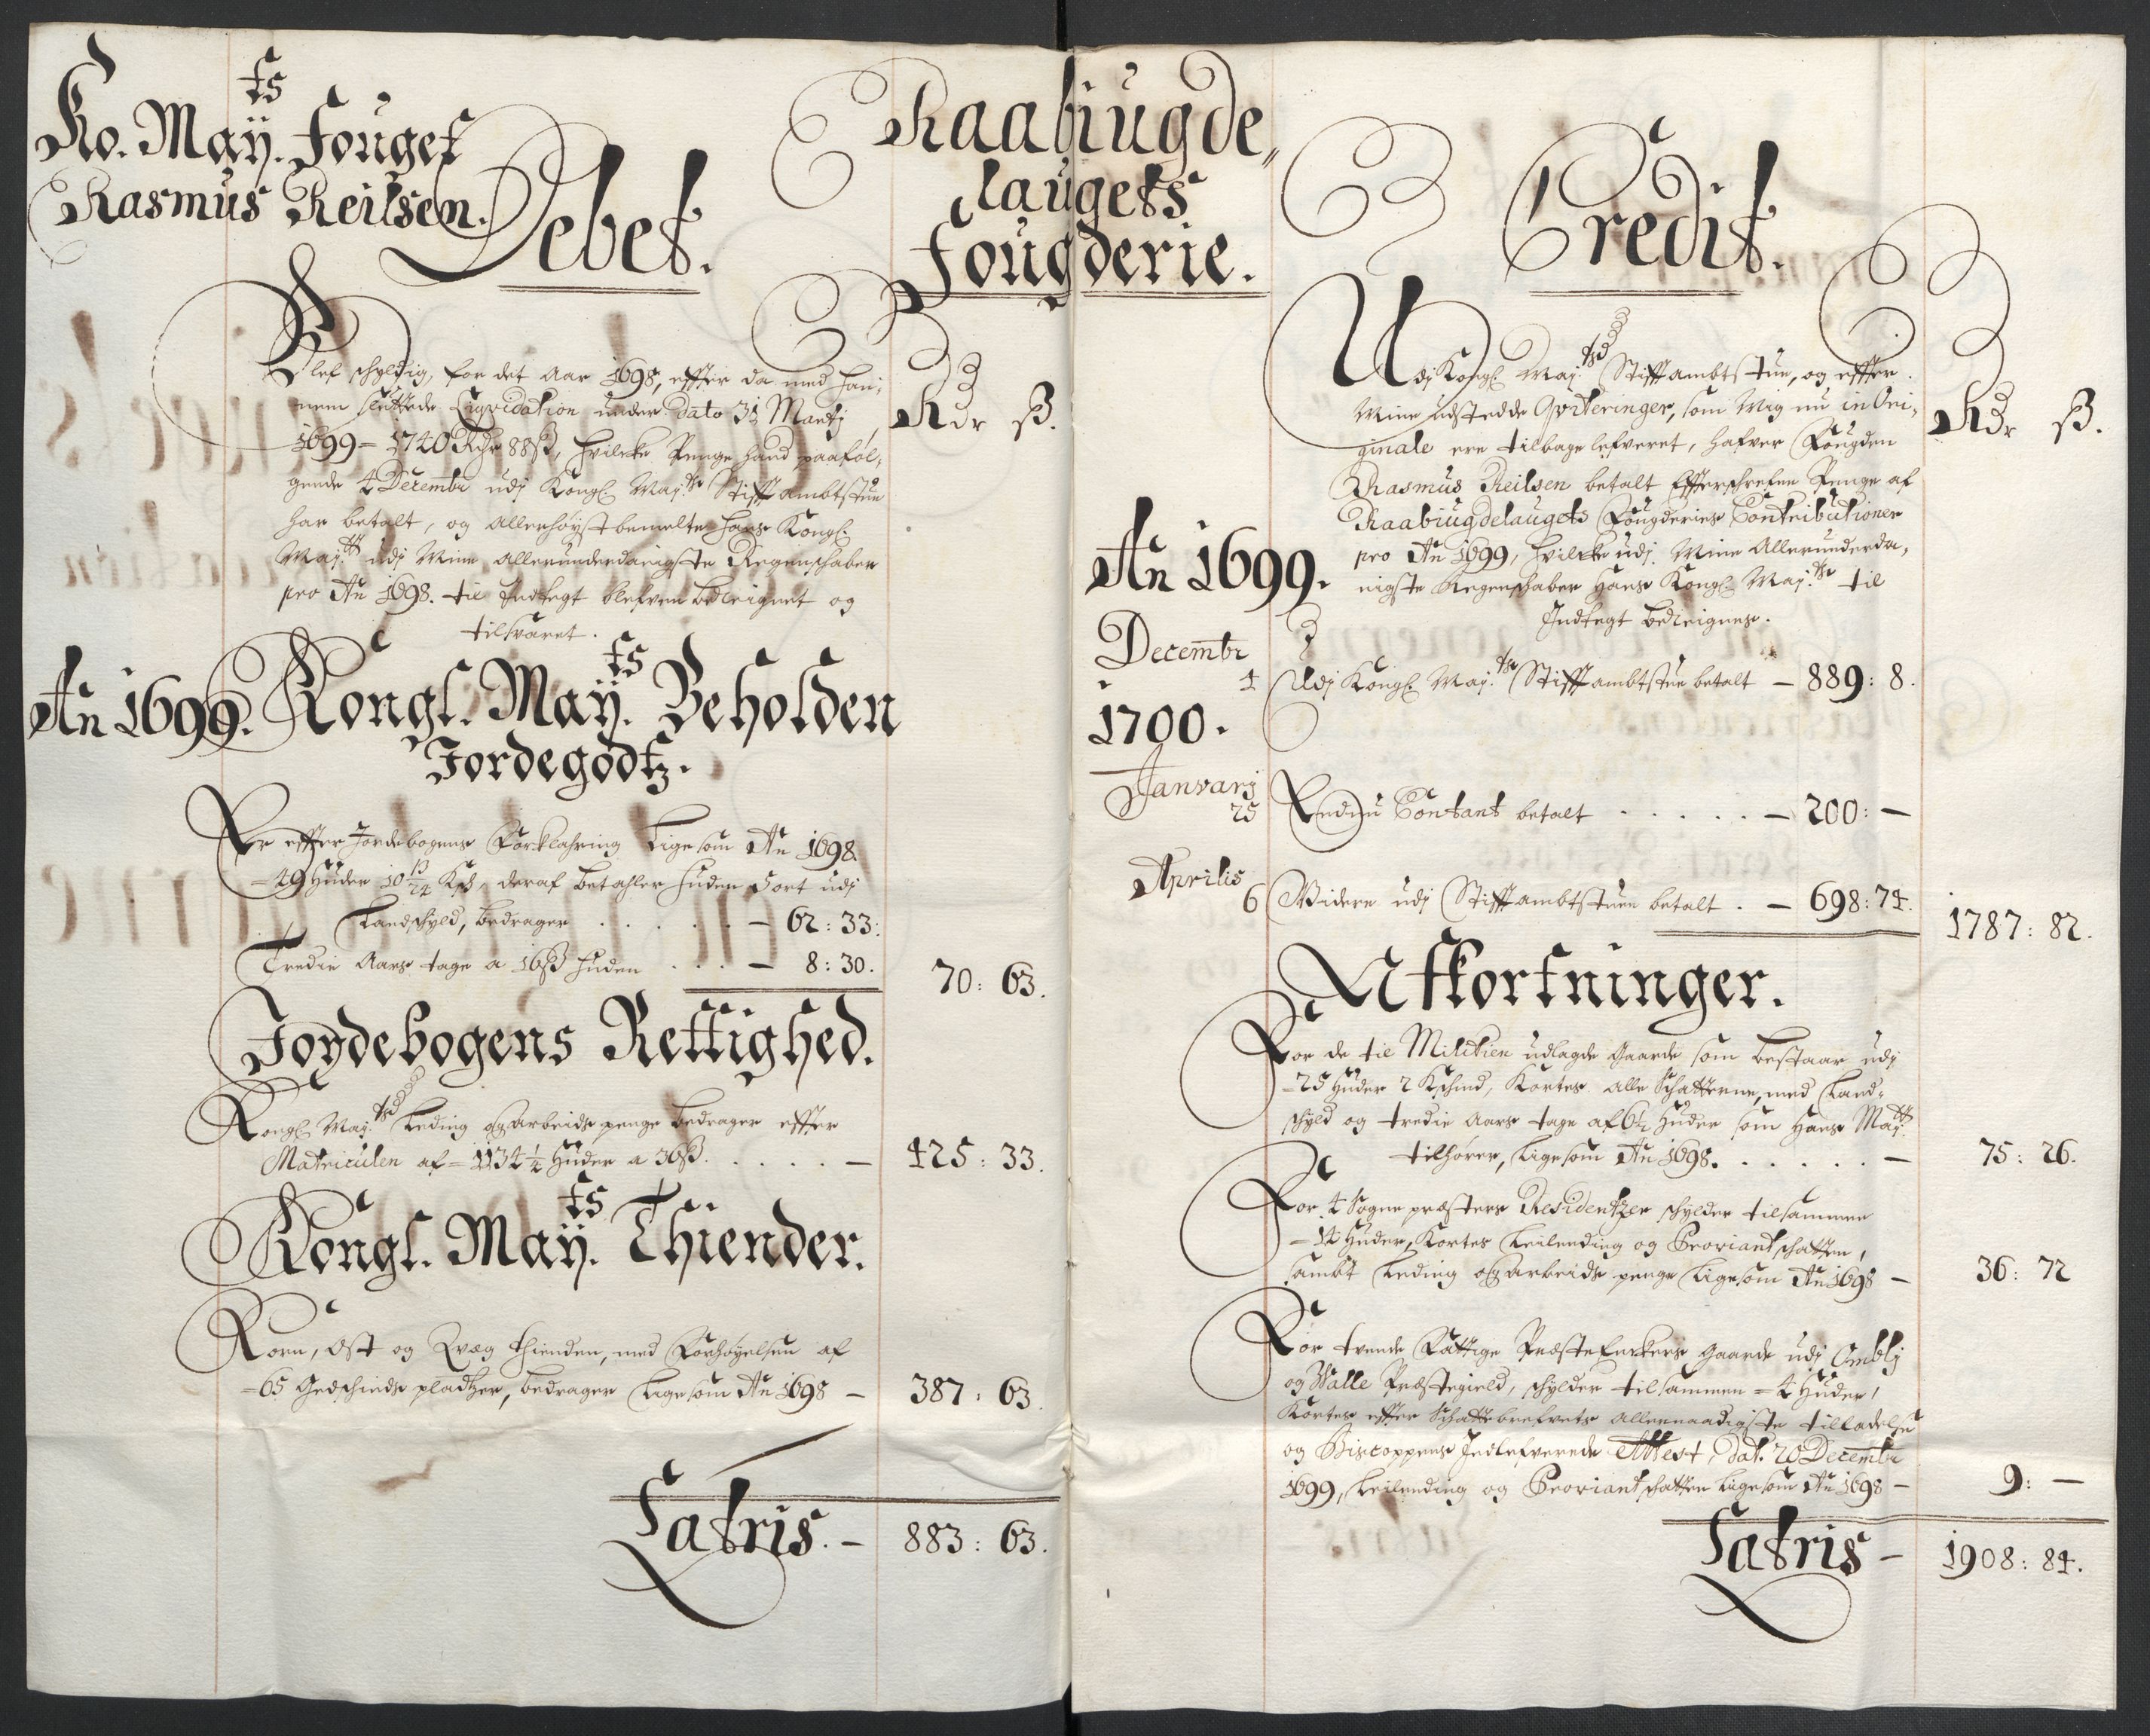 Ko. May.ts Fouget
Rasmus Reilsen.
Debet.
Raabiugde„
laugets
Fougderie.
Blef schyldig, for det Aar 1698, effter da med han¡
nem sluttede Liqvidation under dato 31 Martj
1699 – 1740 Rdr 88 ß, hvilcke Penge hand paaføl¡
gende 4 Decembr udj Kongl. May.ts Stifftambtstue
har betalt, og Allerhøystbemelte Hans Kongl.
May.tt udj Mine Allerunderdanigste Regenschaber
pro Ao 1698. til Indtegt blefven beReignet og
tilsvaret.
Rdr ß.
An 1699. Kongl. May.ts Beholden
Jordegodtz.
Er effter Jordebogens Forklahring Ligesom An 1698
= 49 Huder 10 13/24 Ksk, deraf betahler Huden 5 ort udj
Landschyld, bedrager . . . . . – 62: 33:
Tredie Aars tage a 16 ß Huden . . . – 8: 30.
70: 63.
Jordebogens Rettighed.
Kongl. May.ts Leding og Arbeids penge bedrager effter
Matriculen af = 1134 1/4 Huder a 36 ß. . . . . –
425: 33.
Kongl. May.ts Thiender.
Korn, Ost og Qvæg thienden, med Forhøyelsen af
= 65 Gedschinds pladtzer, bedrager Ligesom An 1698 –
387: 63.
Latris. – 883: 63.
Credit.
Udj Kongl. May.ts Stifftambtstue, og effter
Mine udstedde Qviteringer, som Mig nu in Ori¡
ginale ere tilbage lefveret, hafver Fougden
Rasmus Reilsen betalt Effterschrefne Penge af
Raabiugdelaugets Fougderies Contributioner
pro An 1699, hvilcke udj Mine Allerunderda¡
nigste Regenschaber Hans Kongl. May.ts til
Indtegt beReignes.
Rdr ß.
An 1699.
Decembr
4 Udj Kongl. May.ts Stifftambtstue betalt – 889: 8.
1700.
Janvarj
25 Endnu Contant betalt . . . . . – 200: –
Aprilis
6 Videre udj Stifftambtstuen betalt . – 698: 74.
1787: 82.
Afkortninger.
For de til Militien udlagde Gaarde som bestaar udj
= 25 Huder 2 Kschind, Kortes alle Schatterne, med Land¡
schyld og tredie Aars tage af 6 1/2 Huder som Hans May.tt
tilhører, Ligesom An 1698. . . . . . –
75: 26.
For 4 Sogne præsters Residentzer schylder tilsammen
= 14 Huder, Kortes Leilending og Proviantschatten,
sambt Leding og Arbeids penge Ligesom An 1698 –
36: 72
For tvende Fattige Præste Enckers Gaarde udj Omblj
og Walle Præstegield, schylder tilsammen = 4 Huder,
Kortes effter Schattebrefvets allernaadigste tilladelse
og Biscoppens Indlefverede Attest, dat. 20 Decembr
1699, Leilending og Proviantschatten Ligesom An 1698 –
9: –
Latris – 1908: 84.